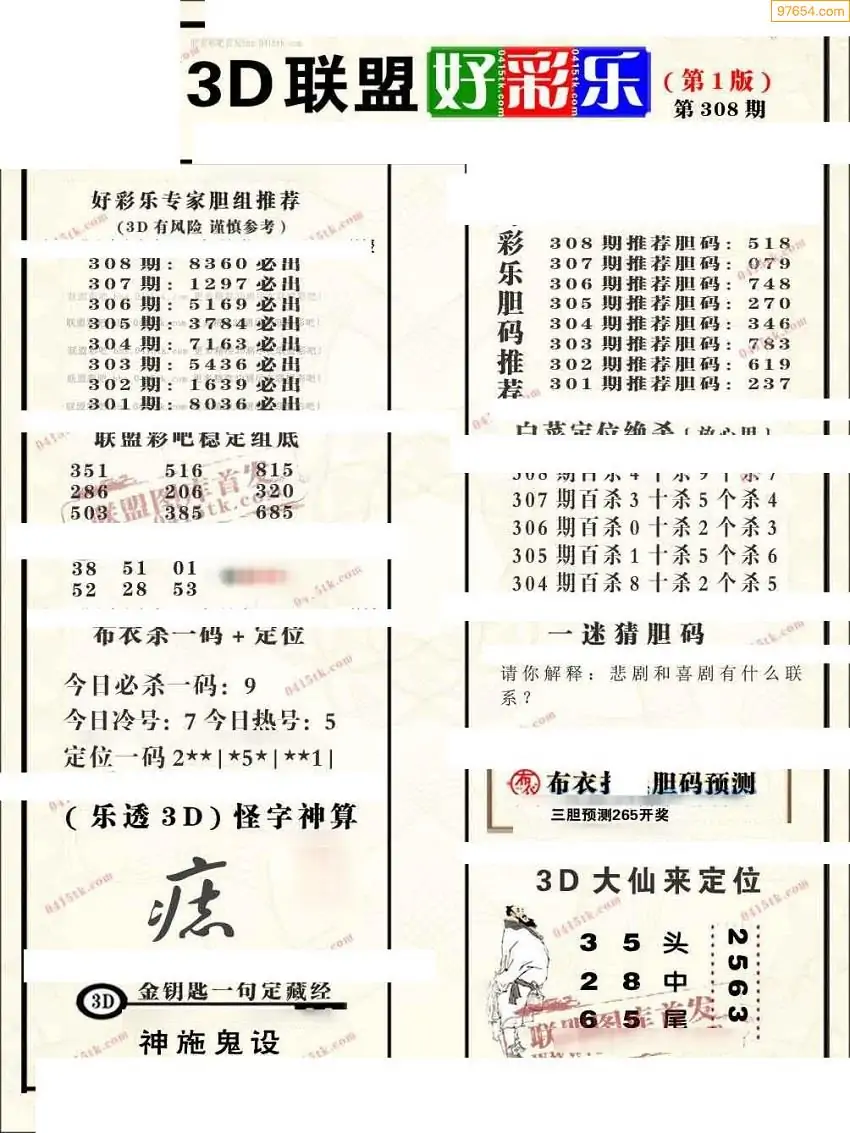 97654.com
3D联盟好彩乐(第1版)
第308期
好彩乐专家胆组推荐
(3D有风险 谨慎参考)
308期: 8360必出
307期: 1297必出
306期: 5169必出
305期: 3784必出
304期: 7163必出
303期: 5436必出
302期: 1639必出
301期: 8036必出
联盟彩吧稳定组底
351 516 815
286 206 320
503 385 685
38 51 01
52 28 53
布衣杀一码+定位
今日必杀一码: 9
今日冷号: 7 今日热号: 5
定位一码 2**|*5*|**1|
(乐透3D)怪字神算
痣
3D 金钥匙一句定藏经
神施鬼设
彩乐胆码推荐
308期推荐胆码: 518
307期推荐胆码: 079
306期推荐胆码: 748
305期推荐胆码: 270
304期推荐胆码: 346
303期推荐胆码: 783
302期推荐胆码: 619
301期推荐胆码: 237
白菜定位绝杀{放心用}
308期百杀4十杀9个杀7
307期百杀3十杀5个杀4
306期百杀0十杀2个杀3
305期百杀1十杀5个杀6
304期百杀8十杀2个杀5
一迷猜胆码
请你解释: 悲剧和喜剧有什么联
系?
布衣 胆码预测
三胆预测265开奖
3D大仙来定位
3 5 头
2 8 中
6 5 尾
2563
联盟图库首发
0415tk.com